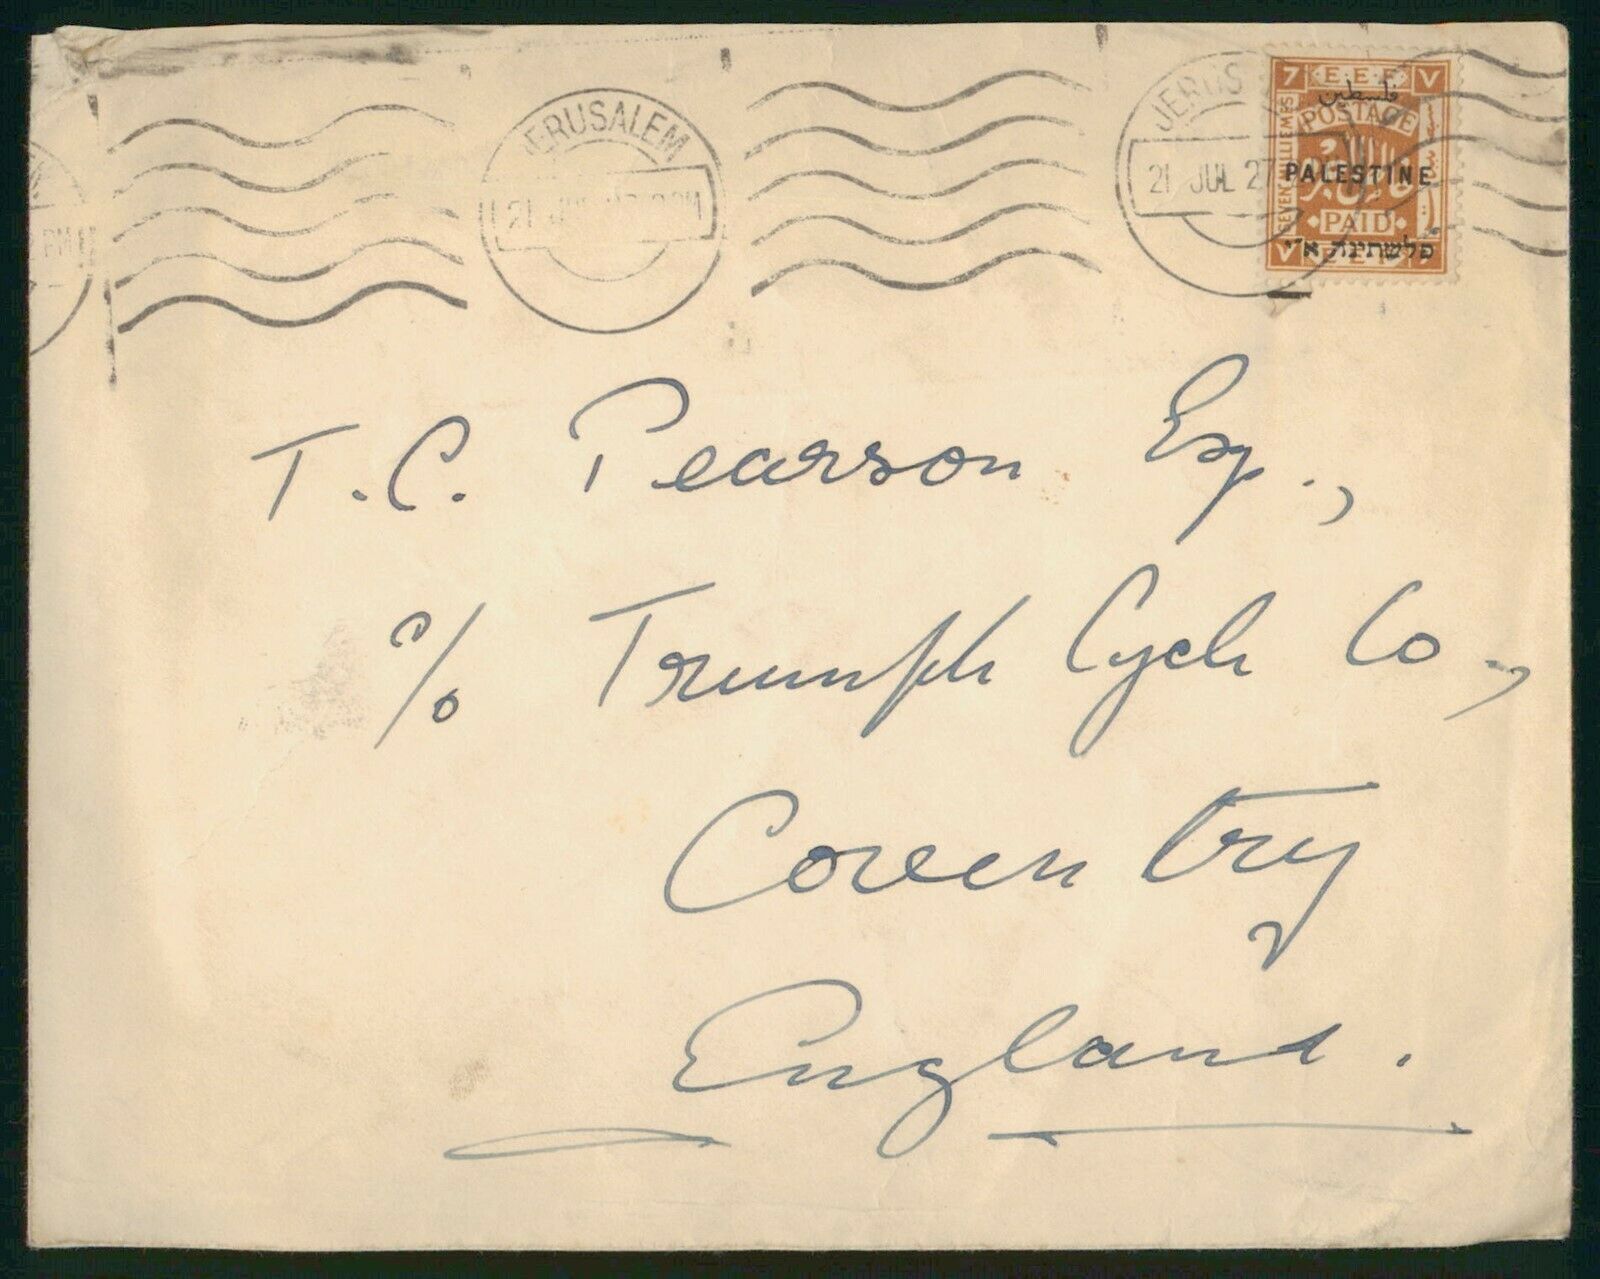 JERUSALEM
21 JUL
21 JUL 27
7 E.E.F. V
فلسطين
POSTAGE
SEVEN MILLIEMES
PALESTINE
PAID
פלשתינה א״י
V E.E.F. 7
T. C. Pearson Esq.,
c/o Triumph Cycle Co.,
Coventry
England.